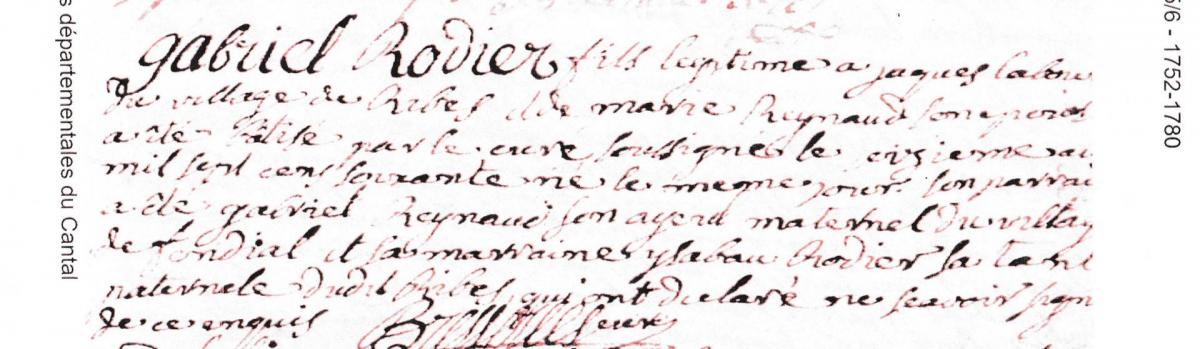 s départementales du Cantal
5/6 - 1752-1780
gabriel Rodier fils legitime a jaques labou
du village de Ribes et de marie Reynaud son epouse
a été batisé par le curé soussigné le ave
mil sept cens souxante né le meme jour son parrai
a été gabriel Reynaud son ayeul maternel du villag
de fondial et sa marraine ysabau Rodier sa tant
maternele dudit Ribes qui ont declaré ne scavoir sign
de ce enquis curé